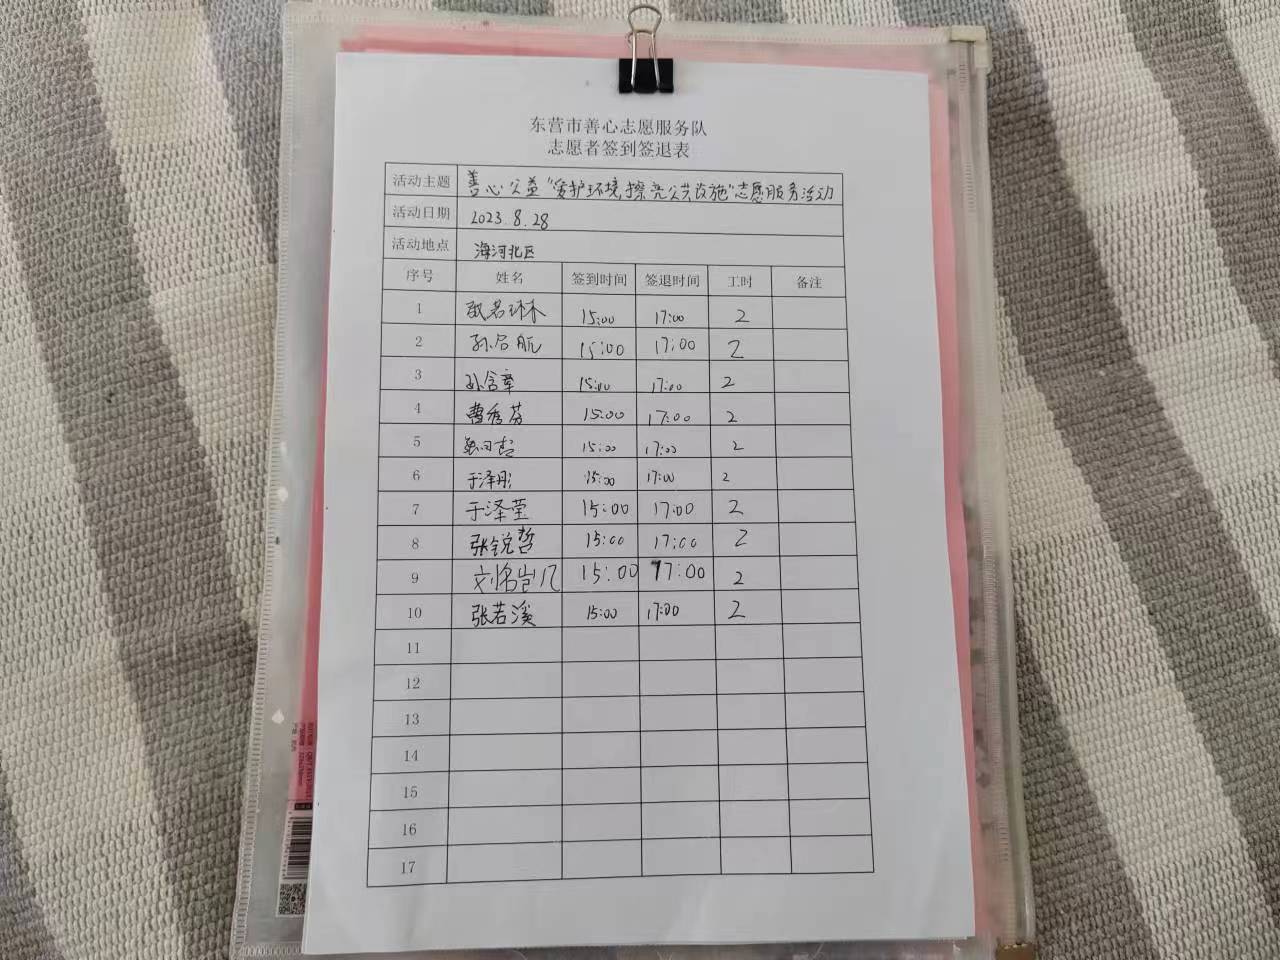 东营市善心志愿服务队
志愿者签到签退表
活动主题 善心公益“爱护环境,擦亮公共设施”志愿服务活动
活动日期 2023.8.28
活动地点 海河北区
序号 姓名 签到时间 签退时间 工时 备注
1 15:00 17:00 2
2 孙名航 15:00 17:00 2
3 孙含章 15:00 17:00 2
4 曹秀芬 15:00 17:00 2
5 15:00 17:00 2
6 于泽彤 15:00 17:00 2
7 于泽莹 15:00 17:00 2
8 张锐哲 15:00 17:00 2
9 刘名岂几 15:00 17:00 2
10 张若溪 15:00 17:00 2
11
12
13
14
15
16
17